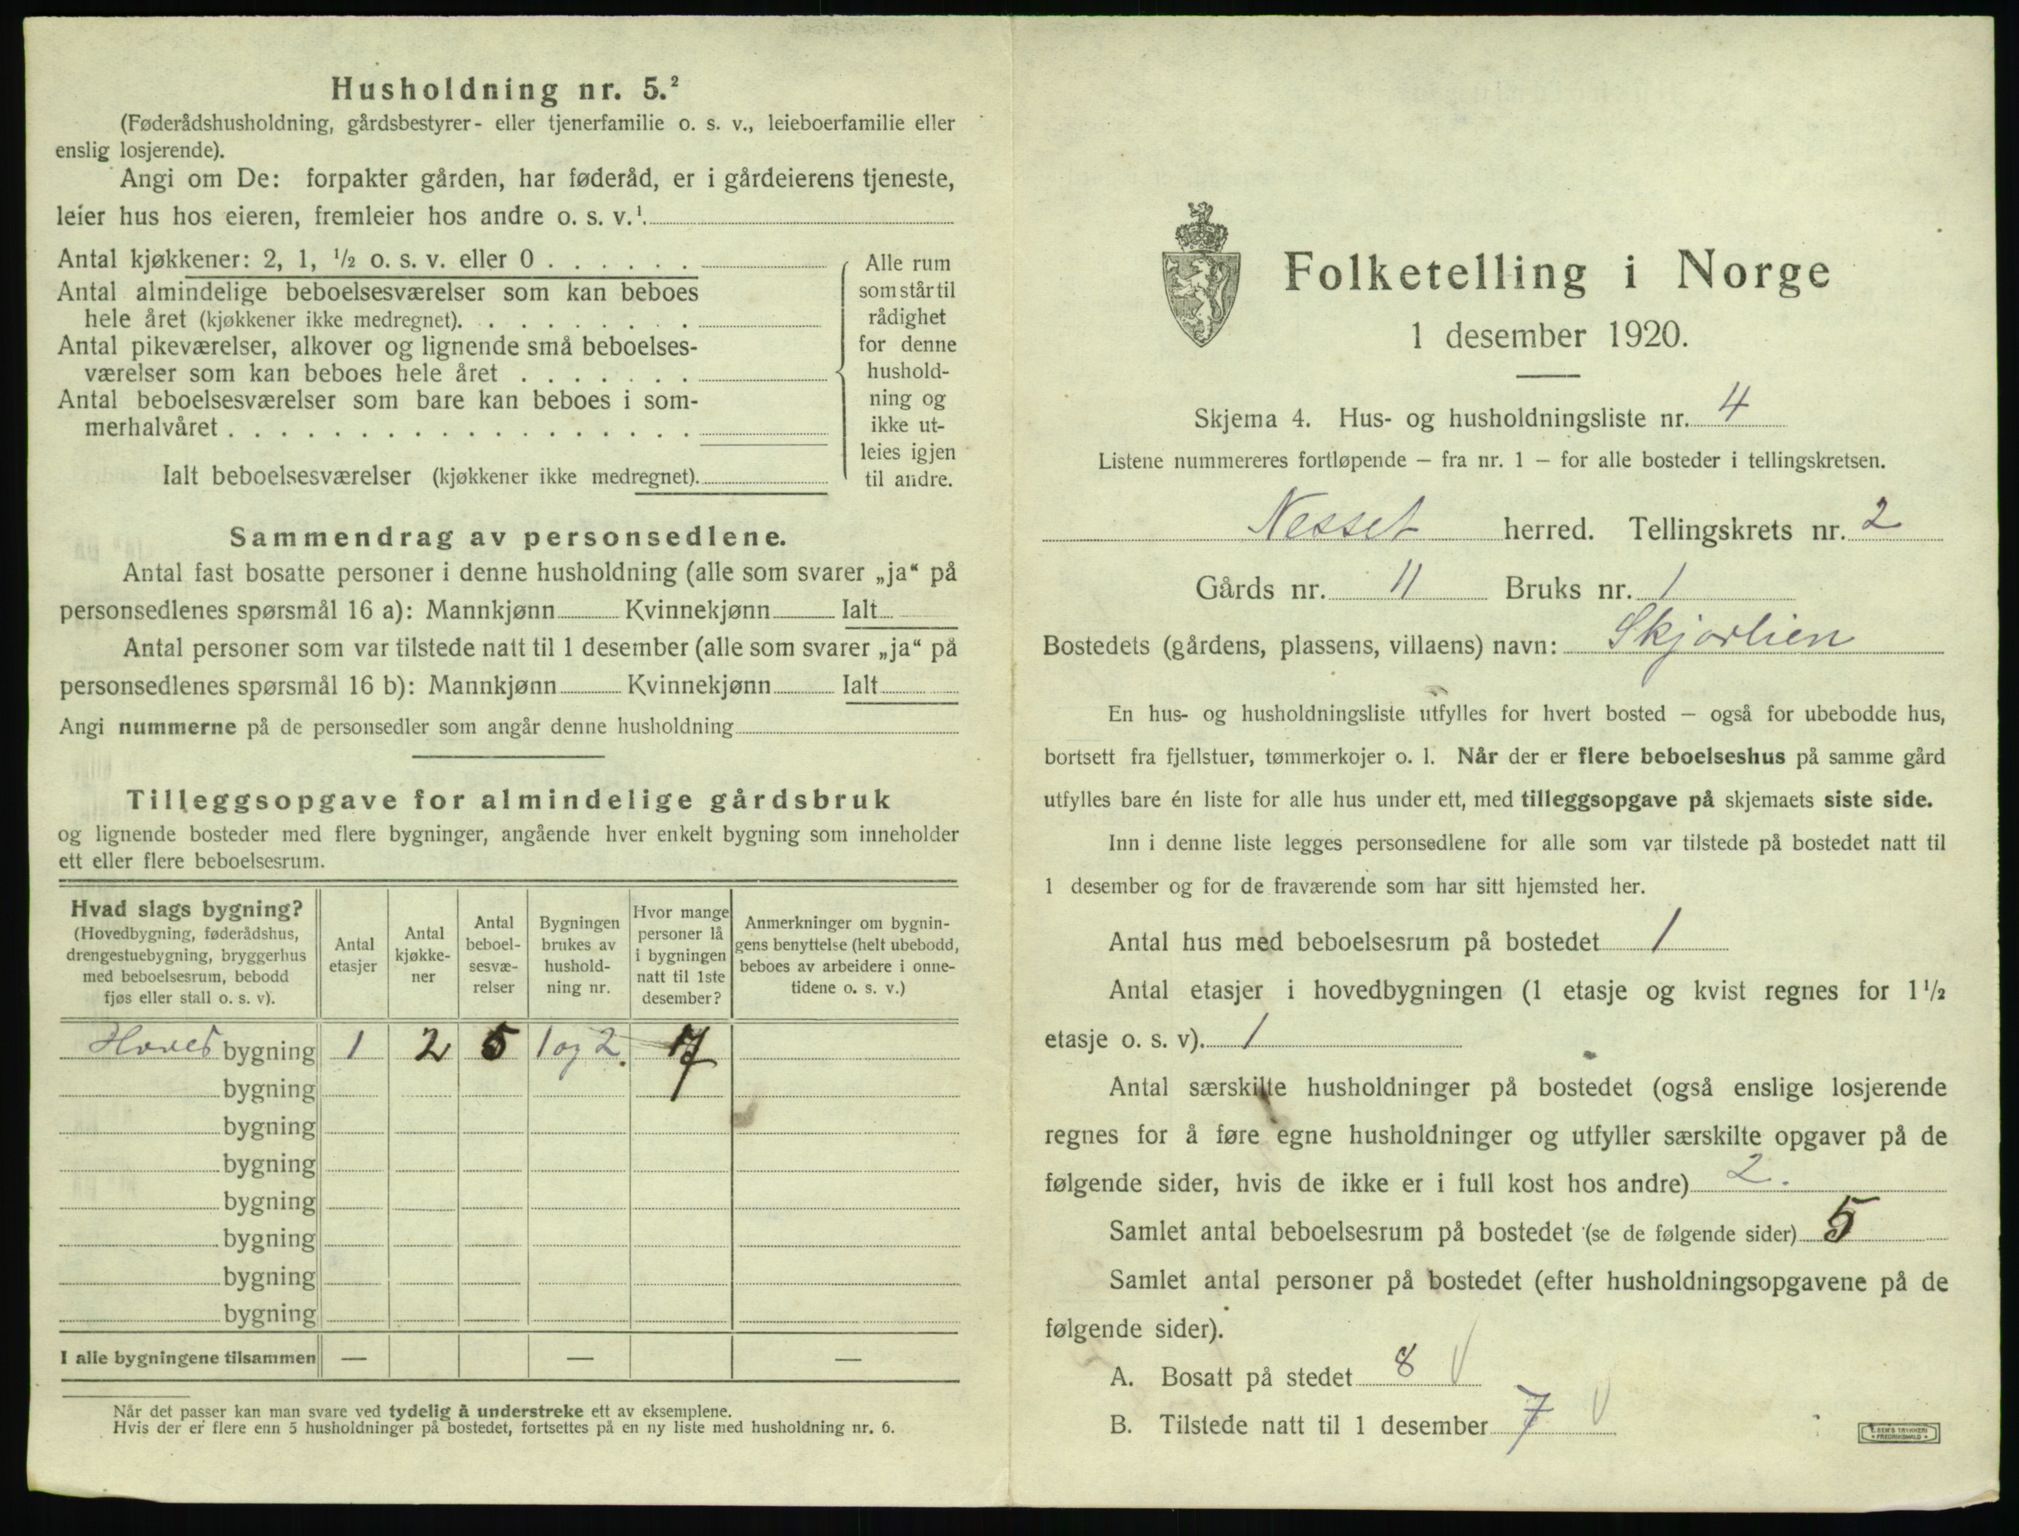 Husholdning nr. 5.²
(Føderådshusholdning, gårdsbestyrer- eller tjenerfamilie o. s. v., leieboerfamilie eller
enslig losjerende).
Angi om De: forpakter gården, har føderåd, er i gårdeierens tjeneste,
leier hus hos eieren, fremleier hos andre o. s. v.¹
Antal kjøkkener: 2, 1, ½ o. s. v. eller 0
Antal almindelige beboelsesværelser som kan beboes
hele året (kjøkkener ikke medregnet).
Antal pikeværelser, alkover og lignende små beboelses-
værelser som kan beboes hele året
Antal beboelsesværelser som bare kan beboes i som-
merhalvåret
Ialt beboelsesværelser (kjøkkener ikke medregnet).
Alle rum
som står til
rådighet
for denne
hushold-
ning og
ikke ut-
leies igjen
til andre.
Sammendrag av personsedlene.
Antal fast bosatte personer i denne husholdning (alle som svarer „ja“ på
personsedlenes spørsmål 16 a): Mannkjønn Kvinnekjønn Ialt
Antal personer som var tilstede natt til 1 desember (alle som svarer „ja“ på
personsedlenes spørsmål 16 b): Mannkjønn Kvinnekjønn Ialt
Angi nummerne på de personsedler som angår denne husholdning
Tilleggsopgave for almindelige gårdsbruk
og lignende bosteder med flere bygninger, angående hver enkelt bygning som inneholder
ett eller flere beboelsesrum.
Hvad slags bygning?
(Hovedbygning, føderådshus,
drengestuebygning, bryggerhus
med beboelsesrum, bebodd
fjøs eller stall o. s. v).
Antal
etasjer
Antal
kjøkke-
ner
Antal
beboel-
sesvæ-
relser
Bygningen
brukes av
hushold-
ning nr.
Hvor mange
personer lå
i bygningen
natt til 1ste
desember?
Anmerkninger om bygnin-
gens benyttelse (helt ubebodd,
beboes av arbeidere i onne-
tidene o. s. v.)
Hoved bygning 1 2 5 1 og 2. 7
bygning
bygning
bygning
bygning
bygning
bygning
bygning
I alle bygningene tilsammen — — —
Når det passer kan man svare ved tydelig å understreke ett av eksemplene.
Hvis der er flere enn 5 husholdninger på bostedet, fortsettes på en ny liste med husholdning nr. 6.
Folketelling i Norge
1 desember 1920.
Skjema 4. Hus- og husholdningsliste nr. 4
Listene nummereres fortløpende – fra nr. 1 – for alle bosteder i tellingskretsen.
Nesset herred. Tellingskrets nr. 2
Gårds nr. 11 Bruks nr. 1
Bostedets (gårdens, plassens, villaens) navn: Skjorlien
En hus- og husholdningsliste utfylles for hvert bosted – også for ubebodde hus,
bortsett fra fjellstuer, tømmerkojer o. l. Når der er flere beboelseshus på samme gård
utfylles bare én liste for alle hus under ett, med tilleggsopgave på skjemaets siste side.
Inn i denne liste legges personsedlene for alle som var tilstede på bostedet natt til
1 desember og for de fraværende som har sitt hjemsted her.
Antal hus med beboelsesrum på bostedet 1
Antal etasjer i hovedbygningen (1 etasje og kvist regnes for 1½
etasje o. s. v). 1
Antal særskilte husholdninger på bostedet (også enslige losjerende
regnes for å føre egne husholdninger og utfyller særskilte opgaver på de
følgende sider, hvis de ikke er i full kost hos andre) 2.
Samlet antal beboelsesrum på bostedet (se de følgende sider) 5
Samlet antal personer på bostedet (efter husholdningsopgavene på de
følgende sider).
A. Bosatt på stedet 8
B. Tilstede natt til 1 desember 7